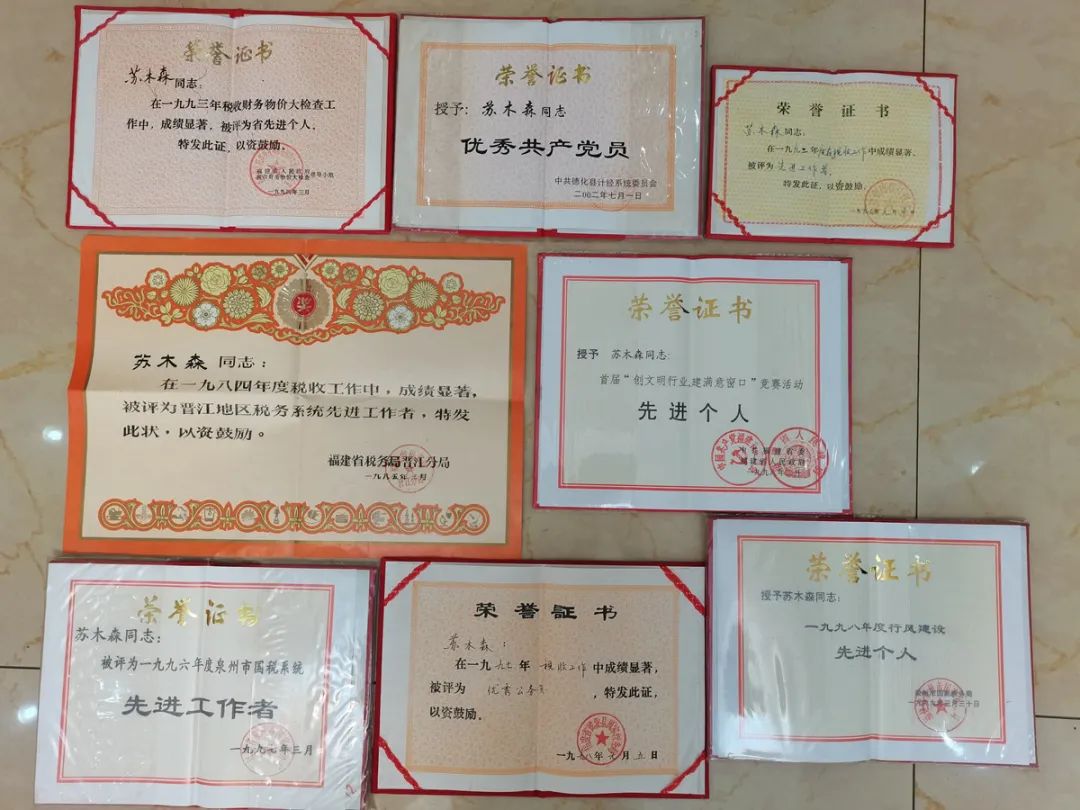 荣誉证书
苏木森同志：
在一九九三年税收财务物价大检查工
作中，成绩显著，被评为省先进个人，
特发此证，以资鼓励。
一九九四年三月
荣誉证书
授予：苏木森同志
优秀共产党员
中共德化县计经系统委员会
二OO二年七月一日
荣誉证书
苏木森同志：
工作中成绩显著，
被评为先进工作者，
特发此证，以资鼓励。
苏木森同志：
在一九八四年度税收工作中，成绩显著，
被评为晋江地区税务系统先进工作者，特发
此状，以资鼓励。
福建省税务局晋江分局
一九八五年三月
荣誉证书
授予 苏木森同志：
首届“创文明行业,建满意窗口”竞赛活动
先进个人
福建省人民政府
荣誉证书
苏木森同志：
被评为一九九六年度泉州市国税系统
先进工作者
一九九七年三月
荣誉証书
苏木森：
在一九九七年税收工作中成绩显著，
被评为优秀公务员，特发此证，
以资鼓励。
一九九八年元月五日
荣誉证书
授予苏木森同志：
一九九八年度行风建设
先进个人
一九九九年三月三十日